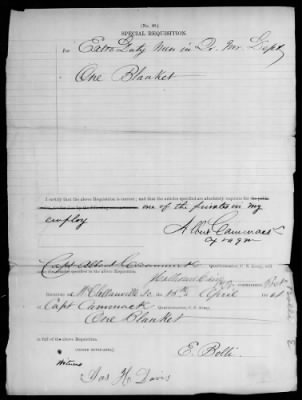 (No. 40.)
SPECIAL REQUISITION.
For Extra Duty Men in Qr. Mr. Dept.
One Blanket
I certify that the above Requisition is correct; and that the articles specified are absolutely requisite for the public
one of the privates in my
employ
Albert Cammack
Capt Albert Cammack Quartermaster, C. S. Army, will
issue the articles specified in the above requisition.
Commanding
Received at McClellanville So Ca 18th April 1864 of
Capt Cammack Quartermaster, C. S. Army,
One Blanket
in full of the above Requisition.
(SIGNED DUPLICATES.)
E. Bolti
Witness
Jas H. Davis